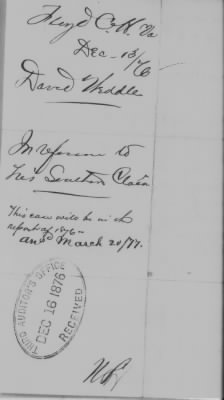 Floyd C. H. Va
Dec. 13/76
David Weddle
In reference to
his Southern Claim
This case will be in the
report of 1876
and March 20/77.
THIRD AUDITOR'S OFFICE
DEC 16 1876
RECEIVED